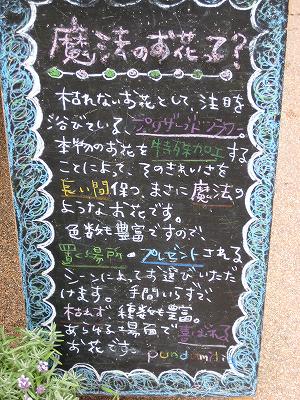 魔法のお花って?
枯れないお花として、注目を
浴びている、プリザーブドフラワー。
本物のお花を特殊加工する
ことによって、そのきれいさを
長い間保つ、まさに魔法の
ようなお花です。
色数も豊富ですので、
置く場所・プレゼントされる
シーンによってお選びいただ
けます。手間いらずで、
枯れず、種類も豊富。
あらゆる場面で喜ばれる
お花です。